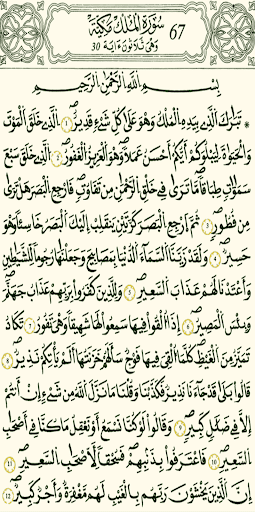 سُورَةُ الْمُلْكِ مَكِّيَّة 67
وَهِيَ ثَلَاثُونَ ءَايَة 30
بِسْمِ اللَّهِ الرَّحْمَٰنِ الرَّحِيمِ
* تَبَٰرَكَ الَّذِي بِيَدِهِ الْمُلْكُ وَهُوَ عَلَىٰ كُلِّ شَيْءٍ قَدِيرٌ 1 الَّذِي خَلَقَ الْمَوْتَ
وَالْحَيَوٰةَ لِيَبْلُوَكُمْ أَيُّكُمْ أَحْسَنُ عَمَلًا وَهُوَ الْعَزِيزُ الْغَفُورُ 2 الَّذِي خَلَقَ سَبْعَ
سَمَٰوَٰتٍ طِبَاقًا مَّا تَرَىٰ فِي خَلْقِ الرَّحْمَٰنِ مِن تَفَٰوُتٍ فَارْجِعِ الْبَصَرَ هَلْ تَرَىٰ
مِن فُطُورٍ 3 ثُمَّ ارْجِعِ الْبَصَرَ كَرَّتَيْنِ يَنقَلِبْ إِلَيْكَ الْبَصَرُ خَاسِئًا وَهُوَ
حَسِيرٌ 4 وَلَقَدْ زَيَّنَّا السَّمَآءَ الدُّنْيَا بِمَصَٰبِيحَ وَجَعَلْنَٰهَا رُجُومًا لِّلشَّيَٰطِينِ
وَأَعْتَدْنَا لَهُمْ عَذَابَ السَّعِيرِ 5 وَلِلَّذِينَ كَفَرُوا بِرَبِّهِمْ عَذَابُ جَهَنَّمَ
وَبِئْسَ الْمَصِيرُ 6 إِذَآ أُلْقُوا فِيهَا سَمِعُوا لَهَا شَهِيقًا وَهِيَ تَفُورُ 7 تَكَادُ
تَمَيَّزُ مِنَ الْغَيْظِ كُلَّمَآ أُلْقِيَ فِيهَا فَوْجٌ سَأَلَهُمْ خَزَنَتُهَآ أَلَمْ يَأْتِكُمْ نَذِيرٌ 8
قَالُوا بَلَىٰ قَدْ جَآءَنَا نَذِيرٌ فَكَذَّبْنَا وَقُلْنَا مَا نَزَّلَ اللَّهُ مِن شَيْءٍ إِنْ أَنتُمْ
إِلَّا فِي ضَلَٰلٍ كَبِيرٍ 9 وَقَالُوا لَوْ كُنَّا نَسْمَعُ أَوْ نَعْقِلُ مَا كُنَّا فِي أَصْحَٰبِ
السَّعِيرِ 10 فَاعْتَرَفُوا بِذَنبِهِمْ فَسُحْقًا لِّأَصْحَٰبِ السَّعِيرِ 11
إِنَّ الَّذِينَ يَخْشَوْنَ رَبَّهُم بِالْغَيْبِ لَهُم مَّغْفِرَةٌ وَأَجْرٌ كَبِيرٌ 12